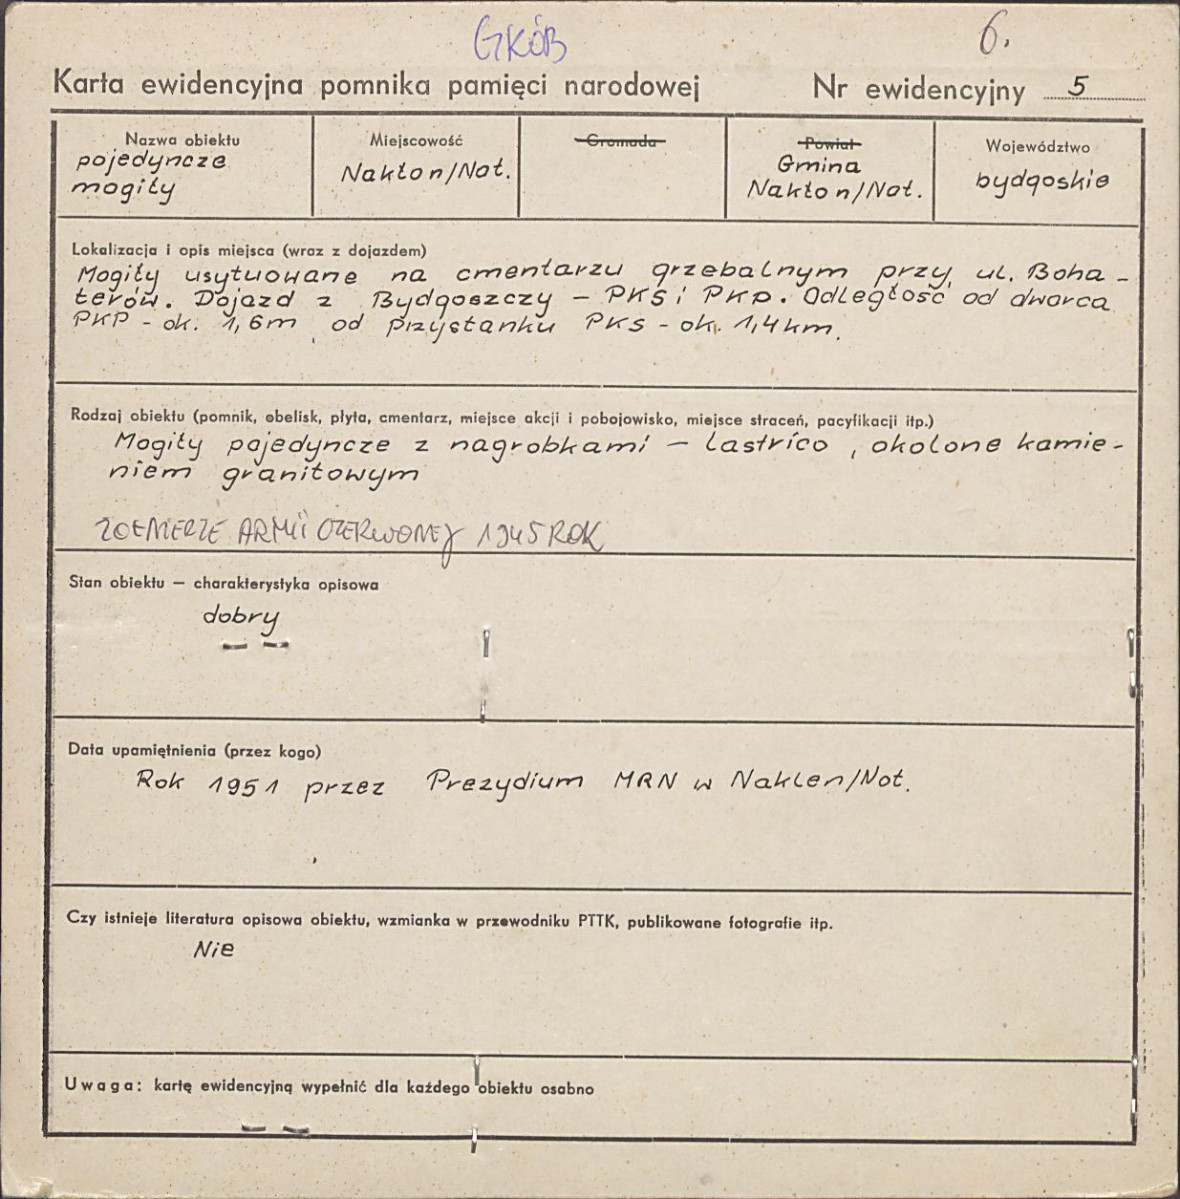 GKÓB
6.
Karta ewidencyjna pomnika pamięci narodowej
Nr ewidencyjny 5
Nazwa obiektu
pojedyncze
mogiły
Miejscowość
Nakło n/Not.
Gromada
Powiat
Gmina
Nakło n/Not.
Województwo
bydgoskie
Lokalizacja i opis miejsca (wraz z dojazdem)
Mogiły usytuowane na cmentarzu grzebalnym przy ul. Boha-
terów. Dojazd z Bydgoszczy – PKS i PKP. Odległość od dworca
PKP - ok. 1,6m od przystanku PKS - ok. 1,4km.
Rodzaj obiektu (pomnik, obelisk, płyta, cmentarz, miejsce akcji i pobojowisko, miejsce straceń, pacyfikacji itp.)
Mogiły pojedyncze z nagrobkami – lastrico, okolone kamie-
niem granitowym
ŻOŁNIERZE ARMII CZERWONEJ 1945 ROK
Stan obiektu — charakterystyka opisowa
dobry
Data upamiętnienia (przez kogo)
Rok 1951 przez Prezydium MRN w Nakle n/Not.
Czy istnieje literatura opisowa obiektu, wzmianka w przewodniku PTTK, publikowane fotografie itp.
Nie
Uwaga: kartę ewidencyjną wypełnić dla każdego obiektu osobno